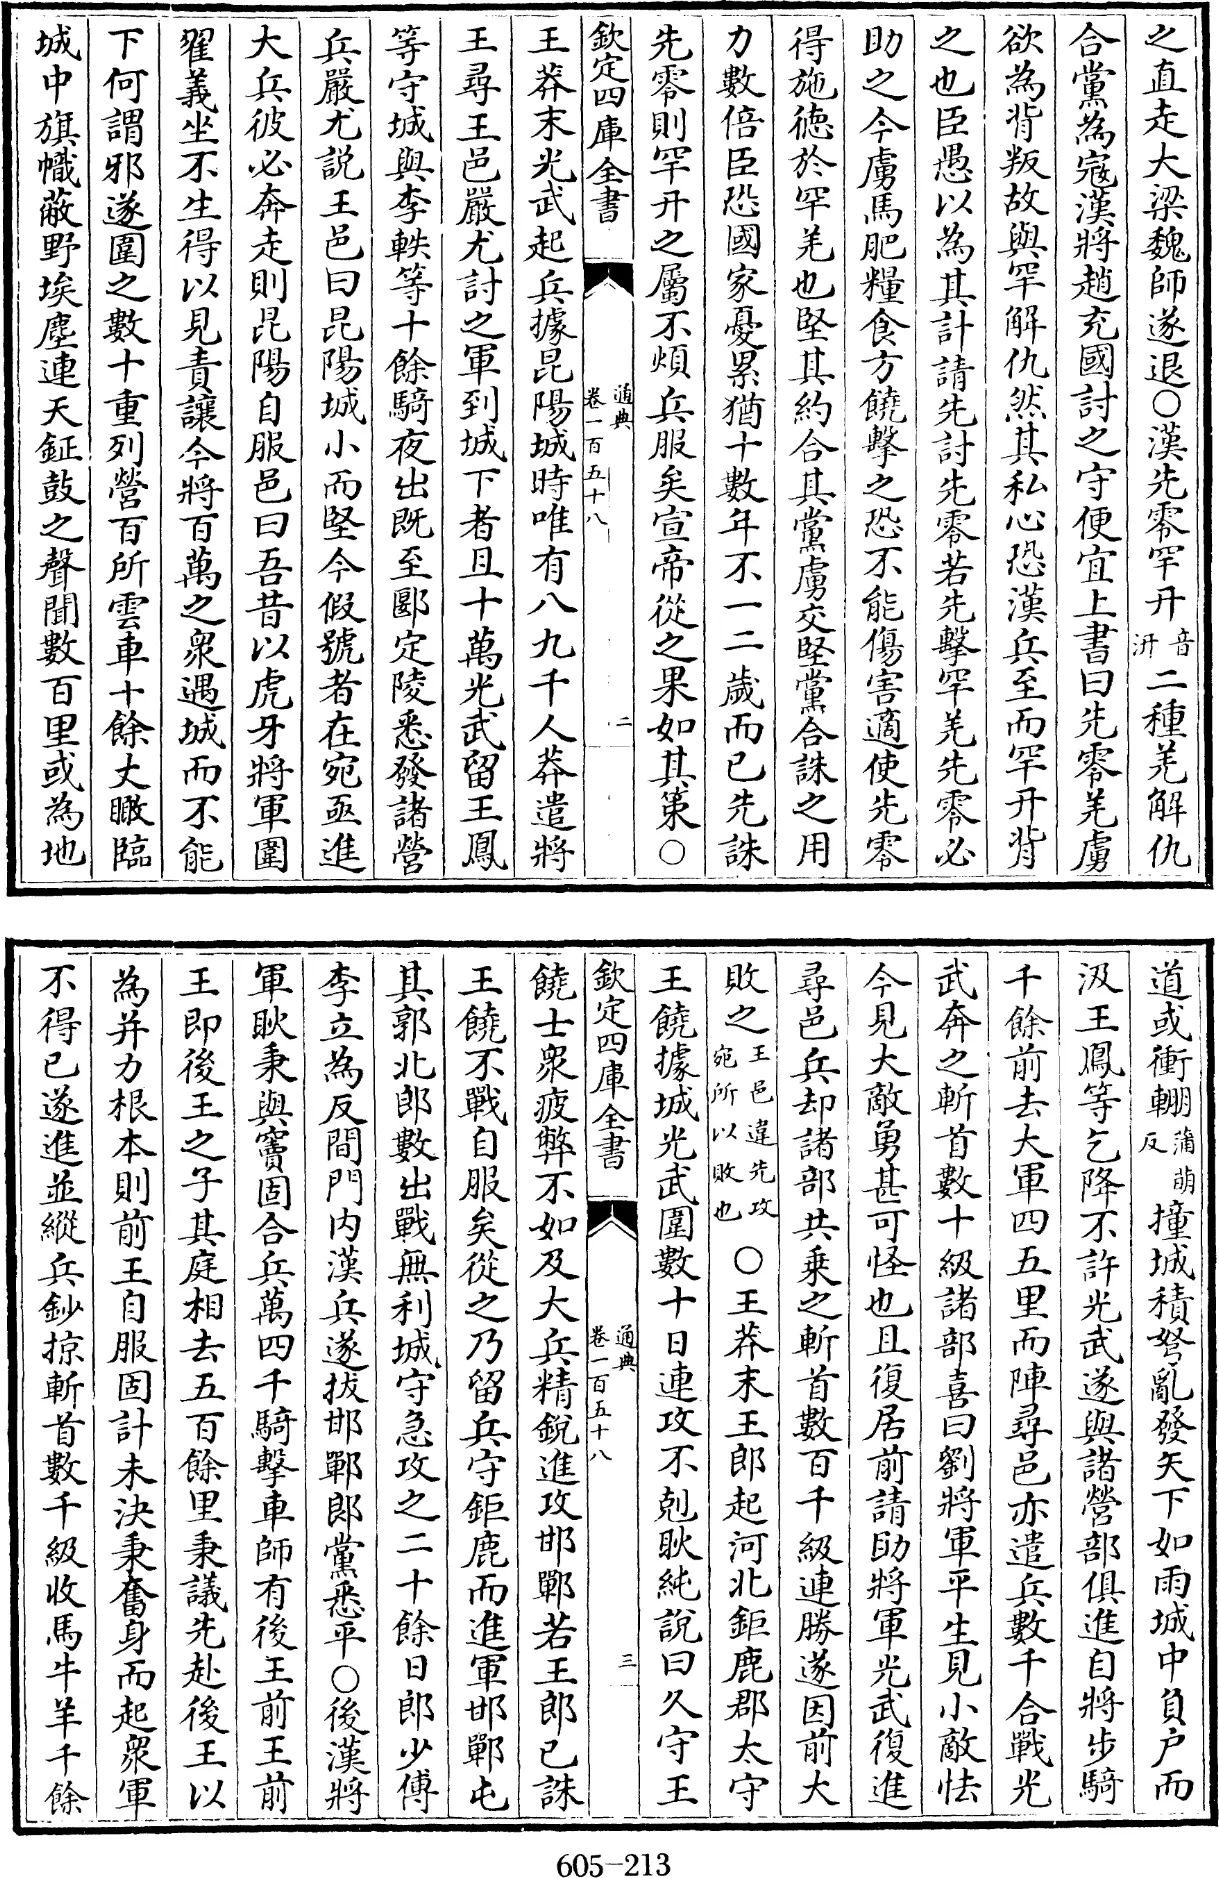 之直走大梁魏師遂退〇漢先零罕幵音汧二種羌解仇
合黨為寇漢將趙充國討之守便宜上書曰先零羌虜
欲為背叛故與罕解仇然其私心恐漢兵至而罕幵背
之也臣愚以為其計請先討先零若先擊罕羌先零必
助之今虜馬肥糧食方饒擊之恐不能傷害適使先零
得施徳於罕羌也堅其約合其黨虜交堅黨合誅之用
力數倍臣恐國家憂累猶十數年不一二歳而已先誅
先零則罕幵之屬不煩兵服矣宣帝從之果如其策〇
欽定四庫全書
通典
卷一百五十八
二
王莽末光武起兵據昆陽城時唯有八九千人莽遣將
王尋王邑嚴尤討之軍到城下者且十萬光武留王鳳
等守城與李軼等十餘騎夜出既至郾定陵悉發諸營
兵嚴尤説王邑曰昆陽城小而堅今假號者在宛亟進
大兵彼必奔走則昆陽自服邑曰吾昔以虎牙將軍圍
翟義坐不生得以見責讓今將百萬之衆遇城而不能
下何謂邪遂圍之數十重列營百所雲車十餘丈瞰臨
城中旗幟蔽野埃塵連天鉦鼓之聲聞數百里或為地
道或衝輣蒲萌反撞城積弩亂發矢下如雨城中負户而
汲王鳳等乞降不許光武遂與諸營部俱進自將步騎
千餘前去大軍四五里而陣尋邑亦遣兵數千合戰光
武奔之斬首數十級諸部喜曰劉將軍平生見小敵怯
今見大敵勇甚可怪也且復居前請助將軍光武復進
尋邑兵却諸部共乗之斬首數百千級連勝遂因前大
敗之王邑違先攻宛所以敗也〇王莽末王郎起河北鉅鹿郡太守
王饒據城光武圍數十日連攻不剋耿純說曰久守王
欽定四庫全書
通典
卷一百五十八
三
饒士衆疲弊不如及大兵精銳進攻邯鄲若王郎已誅
王饒不戰自服矣從之乃留兵守鉅鹿而進軍邯鄲屯
其郭北郎數出戰無利城守急攻之二十餘日郎少傅
李立為反間開門内漢兵遂拔邯鄲郎黨悉平〇後漢將
軍耿秉與竇固合兵萬四千騎擊車師有後王前王前
王即後王之子其庭相去五百餘里秉議先赴後王以
為并力根本則前王自服固計未決秉奮身而起衆軍
不得已遂進並縱兵鈔掠斬首數千級收馬牛羊千餘
605-213